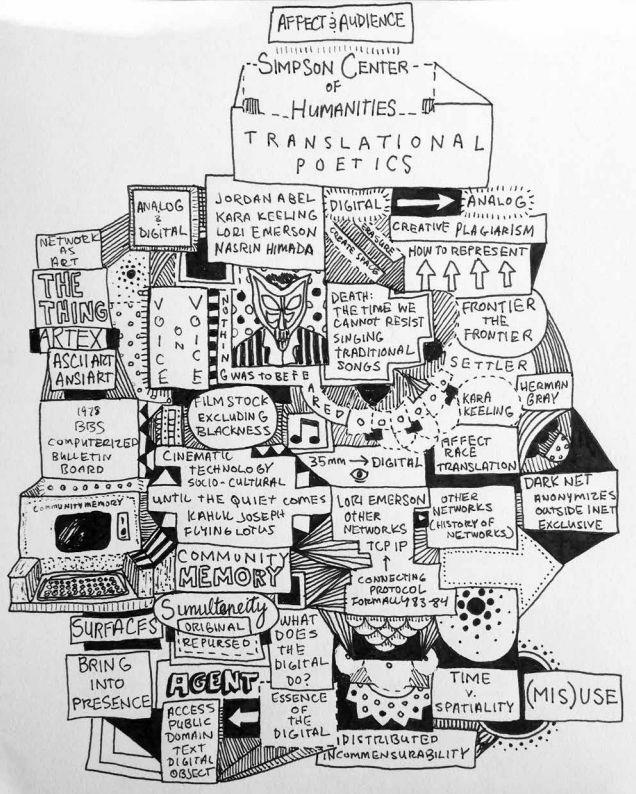 AFFECT & AUDIENCE
SIMPSON CENTER
OF
HUMANITIES
TRANSLATIONAL
POETICS
ANALOG
&
DIGITAL
JORDAN ABEL
KARA KEELING
LORI EMERSON
NASRIN HIMADA
DIGITAL
ANALOG
ERASURE
CREATE SPACE
CREATIVE PLAGIARISM
HOW TO REPRESENT
NETWORK
AS
ART
THE
THING
ARTEX
ASCII ART
ANSI ART
VOICE
ON
VOICE
NOTHING WAS TO BE FEARED
DEATH:
THE TIME WE
CANNOT RESIST
SINGING
TRADITIONAL
SONGS
FRONTIER
THE
FRONTIER
SETTLER
KARA
KEELING
HERMAN
GRAY
1978
BBS
COMPUTERIZED
BULLETIN
BOARD
FILM STOCK
EXCLUDING
BLACKNESS
CINEMATIC
TECHNOLOGY
SOCIO-CULTURAL
35mm → DIGITAL
AFFECT
RACE
TRANSLATION
DARK NET
ANONYMIZES
OUTSIDE INET
EXCLUSIVE
UNTIL THE QUIET COMES
KAHLIL JOSEPH
FLYING LOTUS
LORI EMERSON
OTHER
NETWORKS
TCP IP
↑
CONNECTING
PROTOCOL
FORMALLY 83-84
OTHER
NETWORKS
(HISTORY OF
NETWORKS)
COMMUNITY MEMORY
COMMUNITY
MEMORY
SURFACES
Simultaneity
ORIGINAL
REPURSED
WHAT
DOES
THE
DIGITAL
DO?
BRING
INTO
PRESENCE
AGENT
ACCESS
PUBLIC
DOMAIN
TEXT
DIGITAL
OBJECT
ESSENCE
OF THE
DIGITAL
TIME
V.
SPATIALITY
(MIS)USE
DISTRIBUTED
INCOMMENSURABILITY